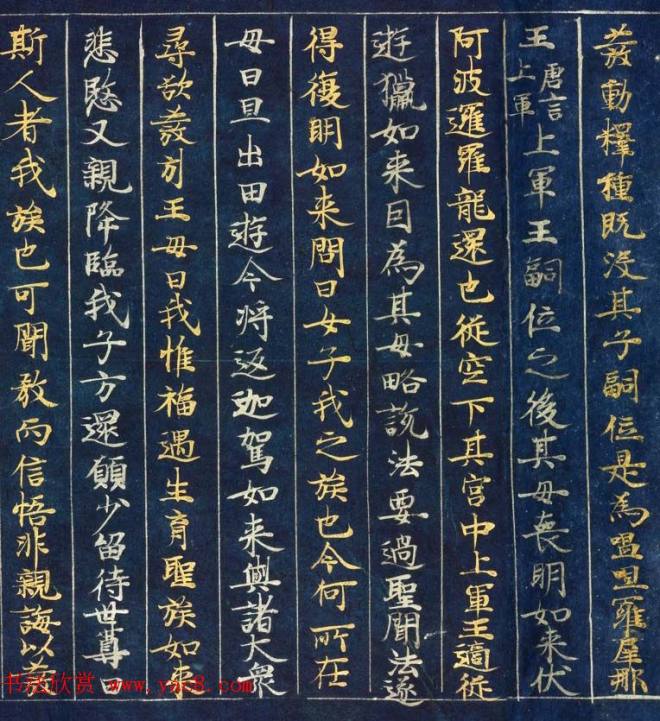 發動釋種既沒其子嗣位是為嗢呾羅犀那
王唐言上軍上軍王嗣位之後其母喪明如来伏
阿波邏羅龍還也從空下其宮中上軍王適從
遊獵如来因為其母略說法要遇聖聞法遂
得復明如来問曰女子我之族也今何所在
母曰旦出田遊今將返迦駕如来與諸大衆
尋欲發引王母曰我惟福遇生育聖族如来
悲愍又親降臨我子方還願少留待世尊曰
斯人者我族也可聞教而信悟非親誨以發
书法欣赏 www.yac8.com